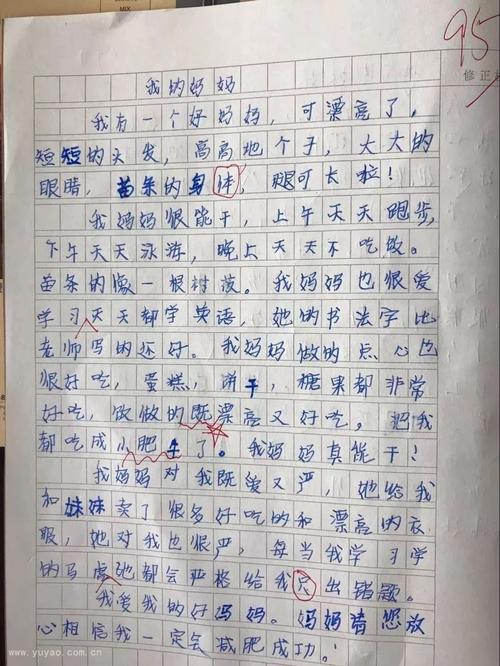 MIX
95
修正
我的妈妈
我有一个好妈妈，可漂亮了，
短短的头发，高高地个子，大大的
眼睛，苗条的身体，腿可长啦！
我妈妈很能干，上午天天跑步，
下午天天泳游，晚上天天不吃饭。
苗条的像一根树
学习天天都学英语，她的书法字比
老师写的还好。我妈妈做的点心也
很好吃，蛋糕，饼干，糖果都非常
好吃，做的既漂亮又好吃。把我
都吃成小肥牛了。我妈妈真能干！
我妈妈对我既爱又严，她给我
和妹妹卖了很多好吃的和漂亮的衣
服，她对我也很严，每当我学习学
的马虎她都会严格给我 出错题。
我爱我的好妈妈。妈妈请您放
心相信我一定会减肥成功！
www.yuyao.com.cn